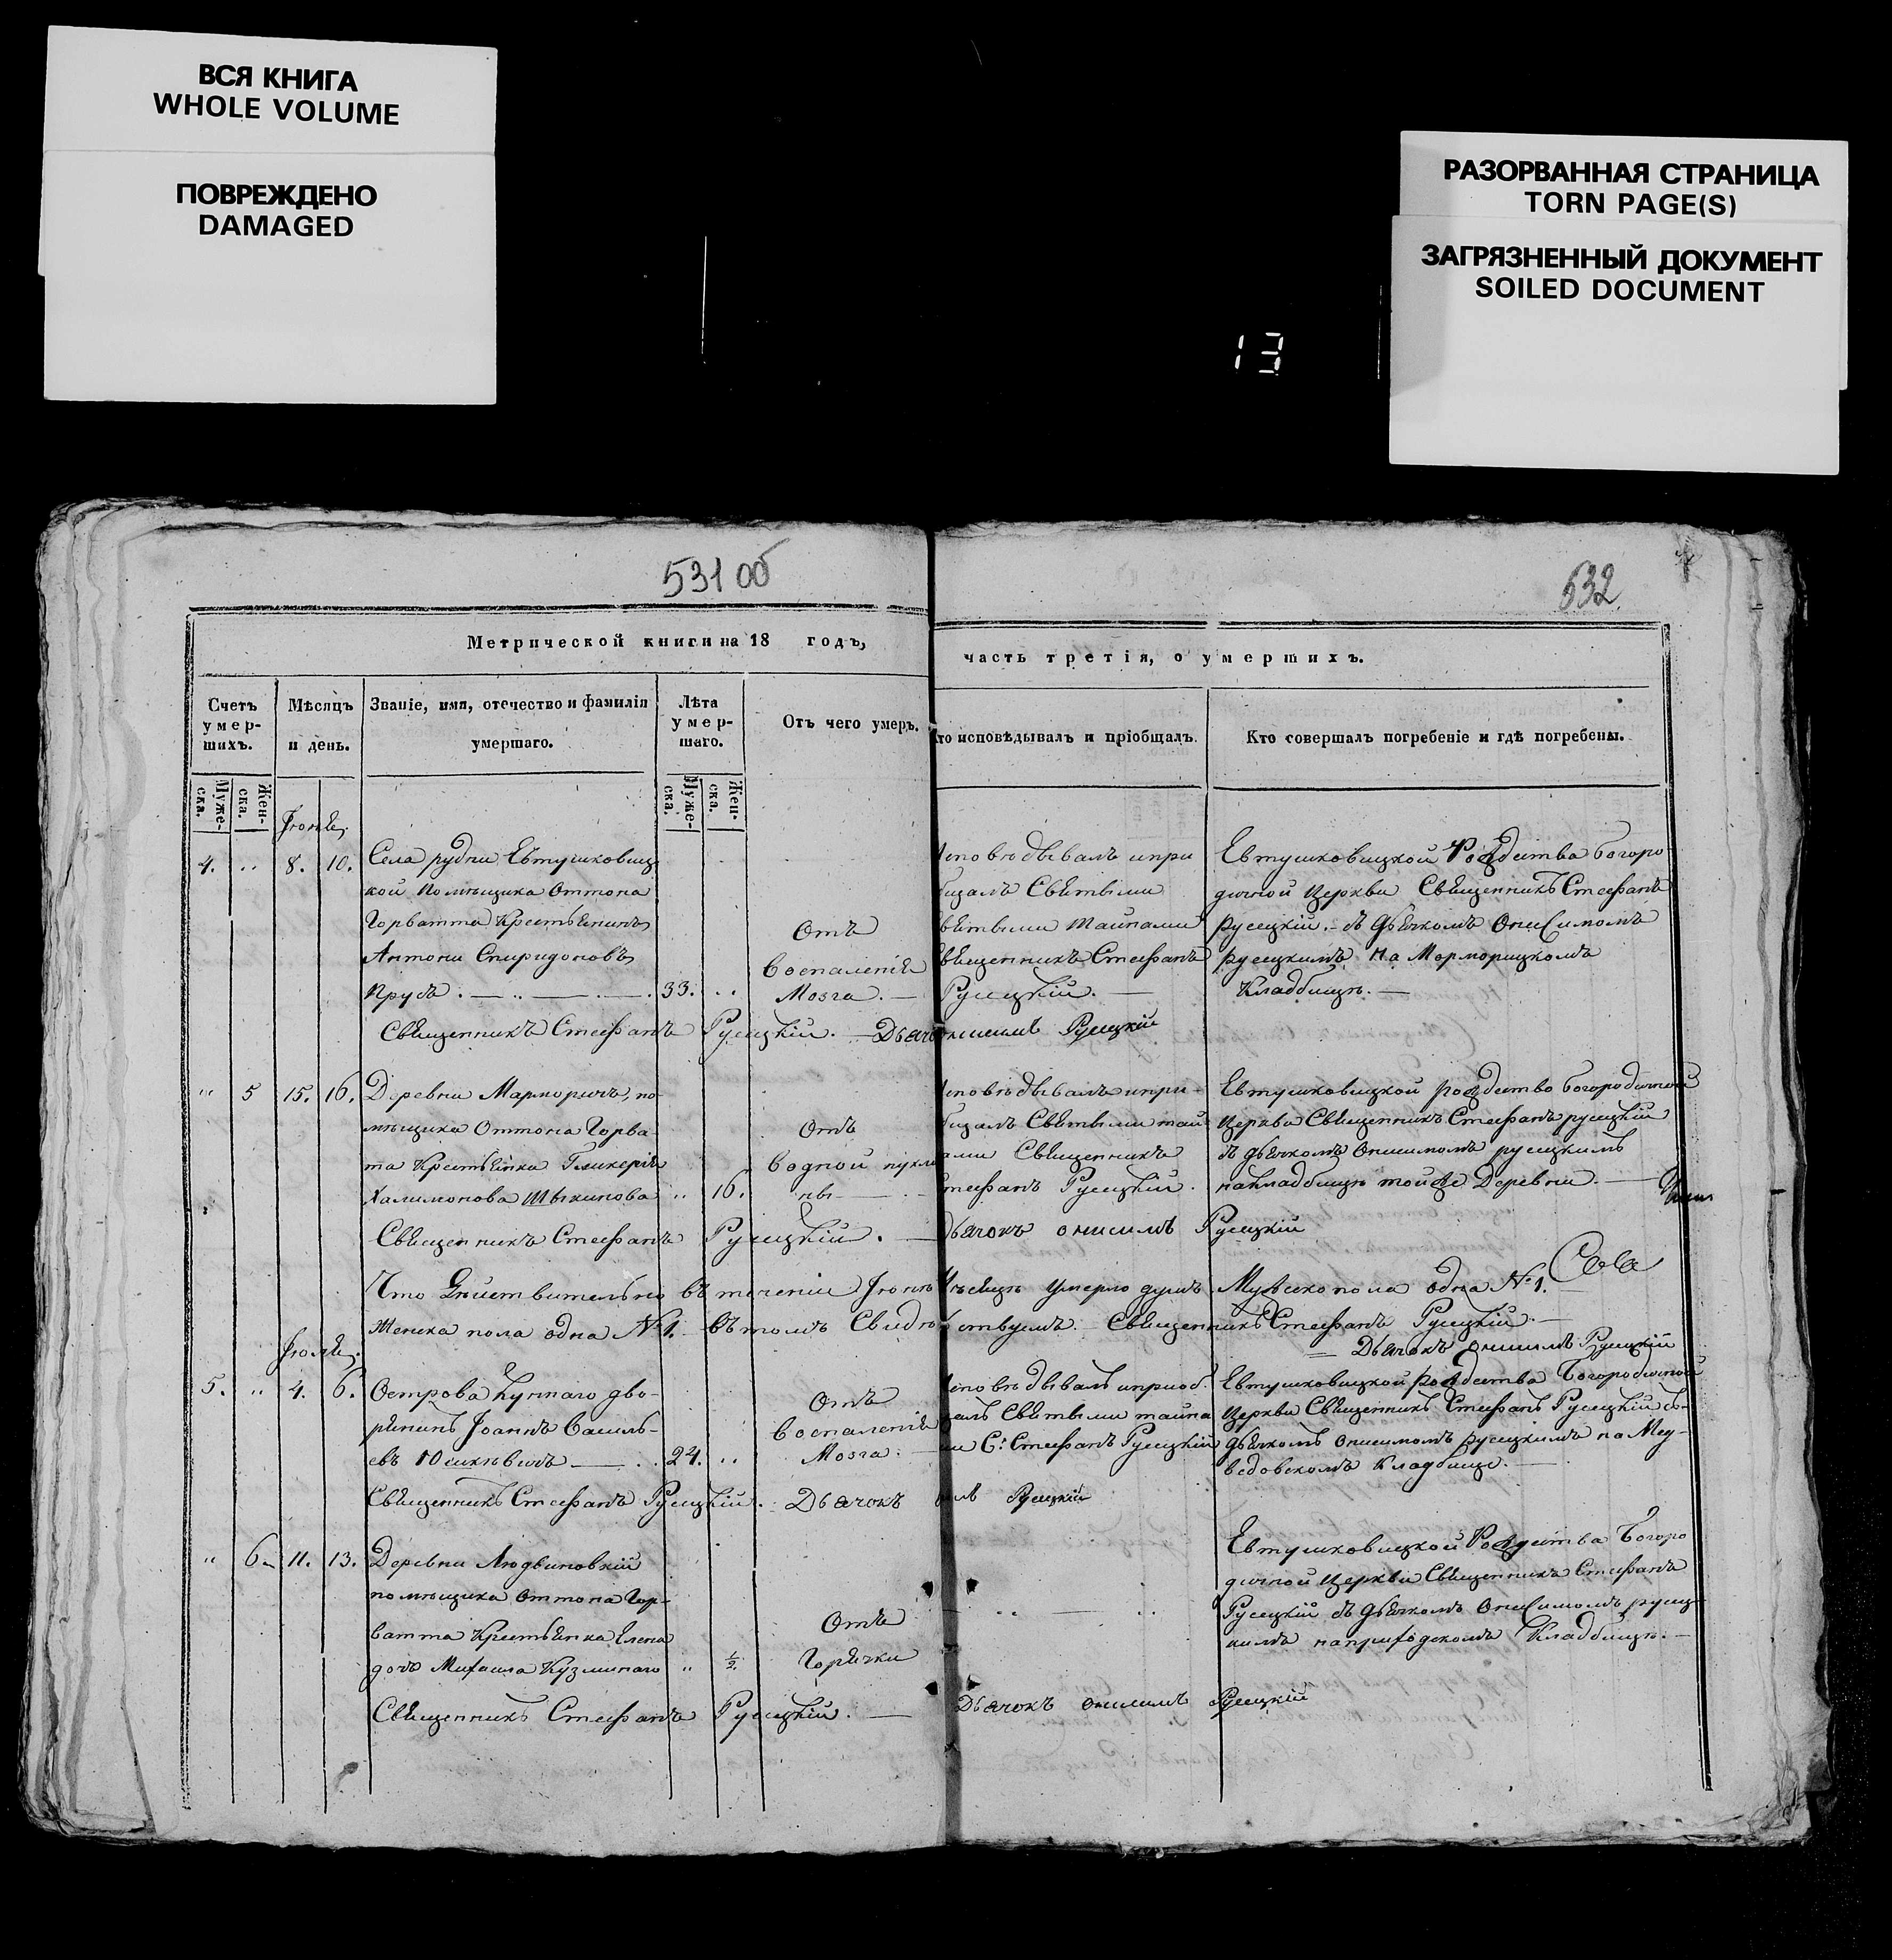 ВСЯ КНИГА
WHOLE VOLUME
ПОВРЕЖДЕНО
DAMAGED
РАЗОРВАННАЯ СТРАНИЦА
TORN PAGE(S)
ЗАГРЯЗНЕННЫЙ ДОКУМЕНТ
SOILED DOCUMENT
13
531 об
532
Метрической книги на 18 годъ,
часть третія, о умершихъ.
Счетъ умер-
шихъ.
Мѣсяцъ
и день.
Званіе, имя, отчество и фамилія
умершаго.
Лѣта
умер-
шаго.
Отъ чего умеръ.
то исповѣдывалъ и пріобщалъ.
Кто совершалъ погребеніе и гдѣ погребены.
Муже-
ска.
Жен-
ска.
Муже-
ска.
Жен-
ска.
Іюня.
4. " 8. 10.
Села рудни Евтушковиц
кой помѣщика Оттона
Горватта Крестьянинъ
Антони Спиридоновъ
Прусъ. 33. "
Отъ
воспаленія
Мозга.
споведывалъ и при
щалъ Святыми
вятыми тайнами
вященникъ Стефанъ
Русецкій.
Евтушковицкой Рождества богоро
дичной церкви Священникъ Стефанъ
русецкій. съ дьячкомъ Онисимомъ
русецкимъ на Марморицкомъ
Кладбищѣ.
Священникъ Стефанъ Русецкій. Дьяч онисимъ Русецкій
" 5 15. 16.
Деревни Марморичъ, по
мѣщика Оттона Горва
та Крестьянка Гликерія
Халимонова " 16.
Отъ
водной пухли
ны
споведывалъ и при-
щалъ Святыми тай
ами Священникъ
тефанъ Русецкій.
Евтушковицкой рождество богородичной
церкви Священникъ Стефанъ русецкій
съ дьячкомъ онисимомъ русецкимъ
на кладбищѣ тойже Деревни.
Священникъ Стефанъ Русецкій. Дьячокъ онисимъ Русецкій
Что Дѣйствительно въ теченіи Іюня Мѣсяца умерло душъ Мужеско пола одна №1.
Женска пола одна №1. въ томъ Свидѣтствуемъ. Священникъ Стефанъ Русецкій.
Дьячокъ онисимъ Русецкій
Іюля.
5. " 4. 6.
Острова Купнаго дво-
рянинъ Іоаннъ Василь-
евъ 24. "
Отъ
воспаленія
Мозга.
споведывалъ и приоб.
щалъ Святыми тайна
ми С: Стефанъ Русецкій
Евтушковицкой рождества Богородичной
Церкви Священникъ Стефанъ Русецкій съ
дьячкомъ онисимомъ русецкимъ на Мед-
ведовскомъ кладбище.
Священникъ Стефанъ Русецкій. Дьячокъ имъ Русецкій
" 6. 11. 13.
Деревни Людвиновкій
помѣщика Оттона Гор-
ватта Крестьянка Елена
дочь Михаила Кузминаго " 1/2.
Отъ
Горячки
Евтушковицкой Рождества Богоро
дичной Церкви Священникъ Стефанъ
Русецкій съ дьячкомъ Онисимомъ русец-
кимъ на приходскомъ Кладбищѣ.
Священникъ Стефанъ Русецкій. Дьячокъ онисимъ Русецкій